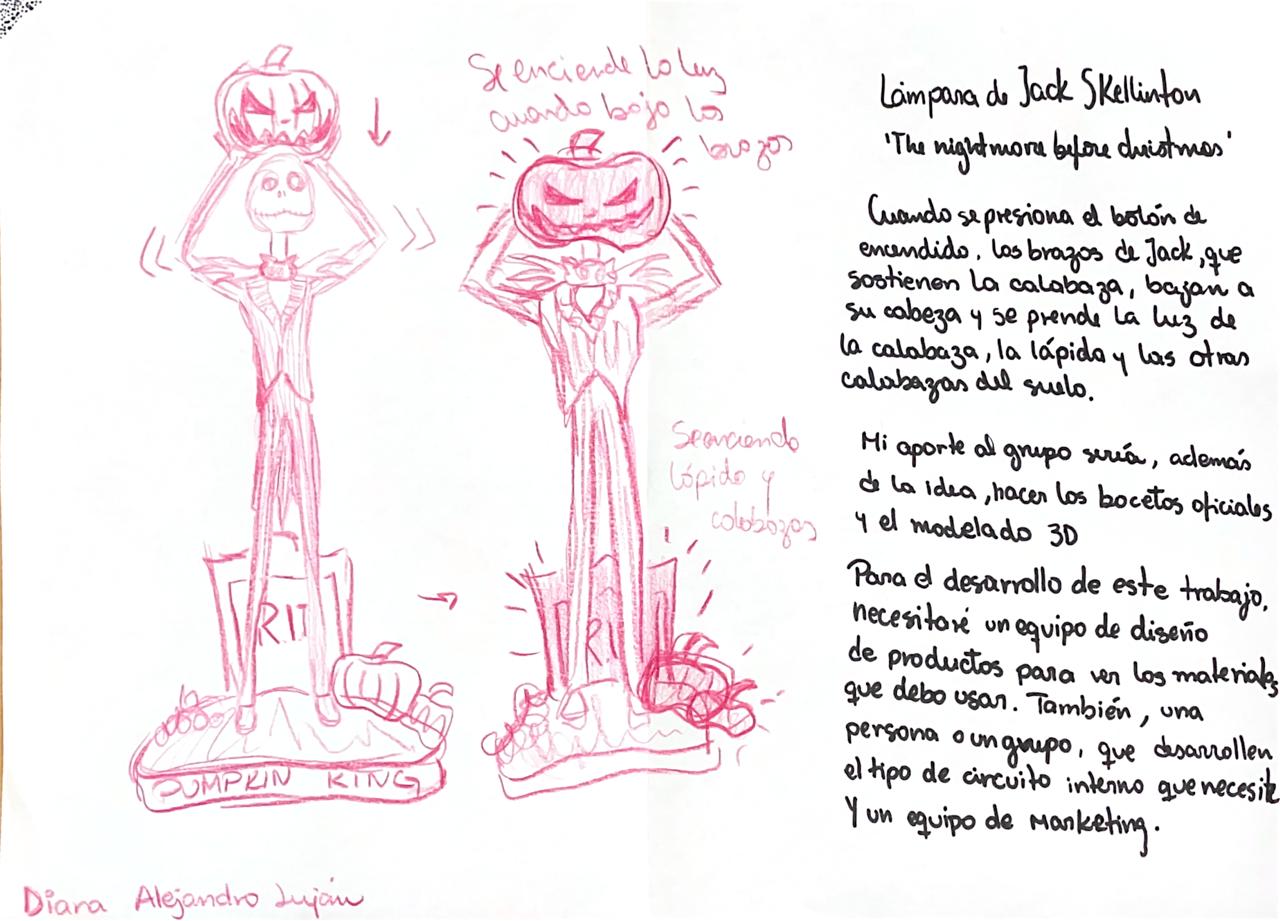 Se enciende la luz
cuando bajo los
brazos
Lámpara de Jack Skellinton
'The nightmare before christmas'
Cuando se presiona el botón de
encendido, los brazos de Jack, que
sostienen la calabaza, bajan a
su cabeza y se prende la luz de
la calabaza, la lápida y las otras
calabazas del suelo.
Mi aporte al grupo sería, además
de la idea, hacer los bocetos oficiales
y el modelado 3D
Para el desarrollo de este trabajo,
necesitaré un equipo de diseño
de productos para ver los materiales
que debo usar. También, una
persona o un grupo, que desarrollen
el tipo de circuito interno que necesite
Y un equipo de Marketing.
lápida y
calabazas
PUMPKIN KING
Diana Alejandro Luján